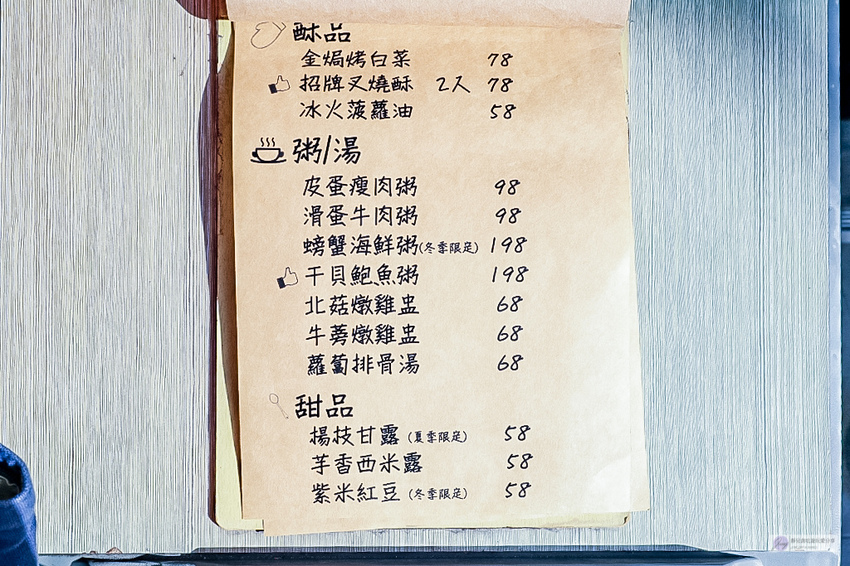 酥品
金焗烤白菜 78
招牌叉燒酥 2入 78
冰火菠蘿油 58
粥/湯
皮蛋瘦肉粥 98
滑蛋牛肉粥 98
螃蟹海鮮粥(冬季限定) 198
干貝鮑魚粥 198
北菇燉雞盅 68
牛蒡燉雞盅 68
蘿蔔排骨湯 68
甜品
楊枝甘露(夏季限定) 58
芋香西米露 58
紫米紅豆(冬季限定) 58